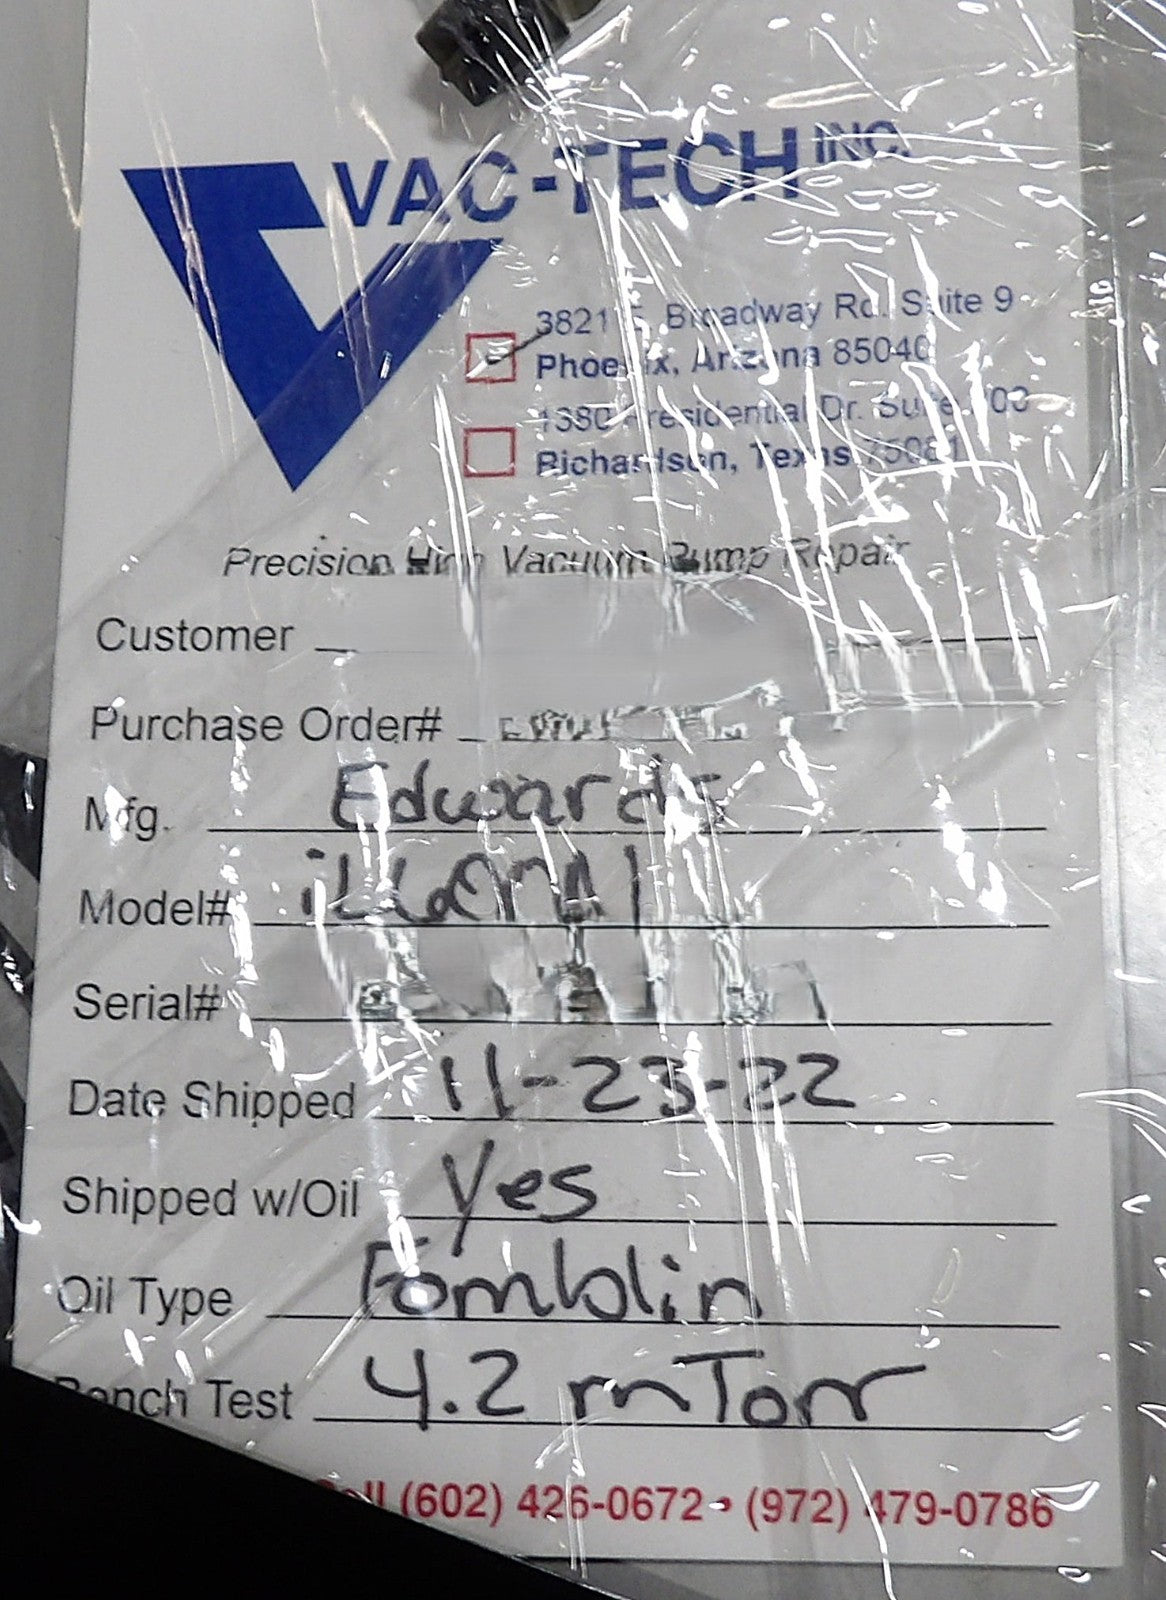 VAC-TECH INC.
3821 E. Broadway Rd. Suite 9
Phoenix, Arizona 85040
1380 Presidential Dr. Suite
Richardson, Texas 75081
Precision High Vacuum Pump Repair
Customer
Purchase Order#
Mfg. Edwards
Model#
Serial#
Date Shipped 11-23-22
Shipped w/Oil Yes
Oil Type Fomblin
Bench Test 4.2 mTorr
Call (602) 426-0672 • (972) 479-0786